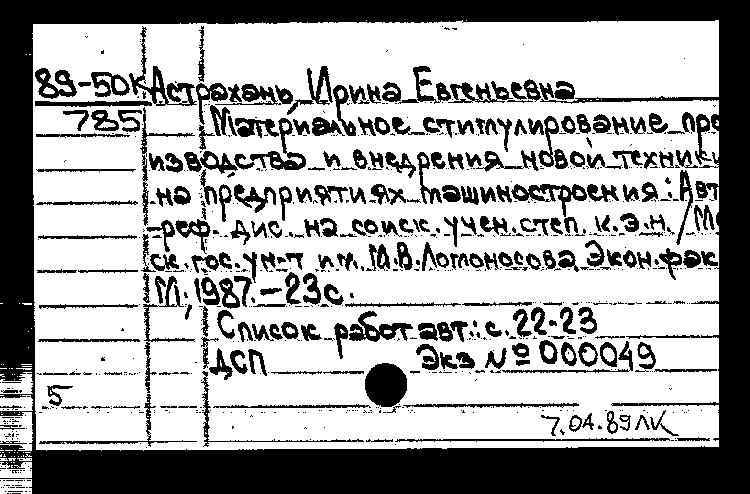 89-50к Астрахань, Ирина Евгеньевна
785 Материальное стимулирование про
изводства и внедрения новой техники
на предприятиях машиностроения: Авт
-реф. дис. на соиск. учен. степ. к.э.н. / Мо
ск. гос. ун-т им. М.В.Ломоносова, Экон. фак
М., 1987.-23с.
Список работ авт.: с. 22-23
ДСП Экз № 000049
5
7.04.89 ЛК